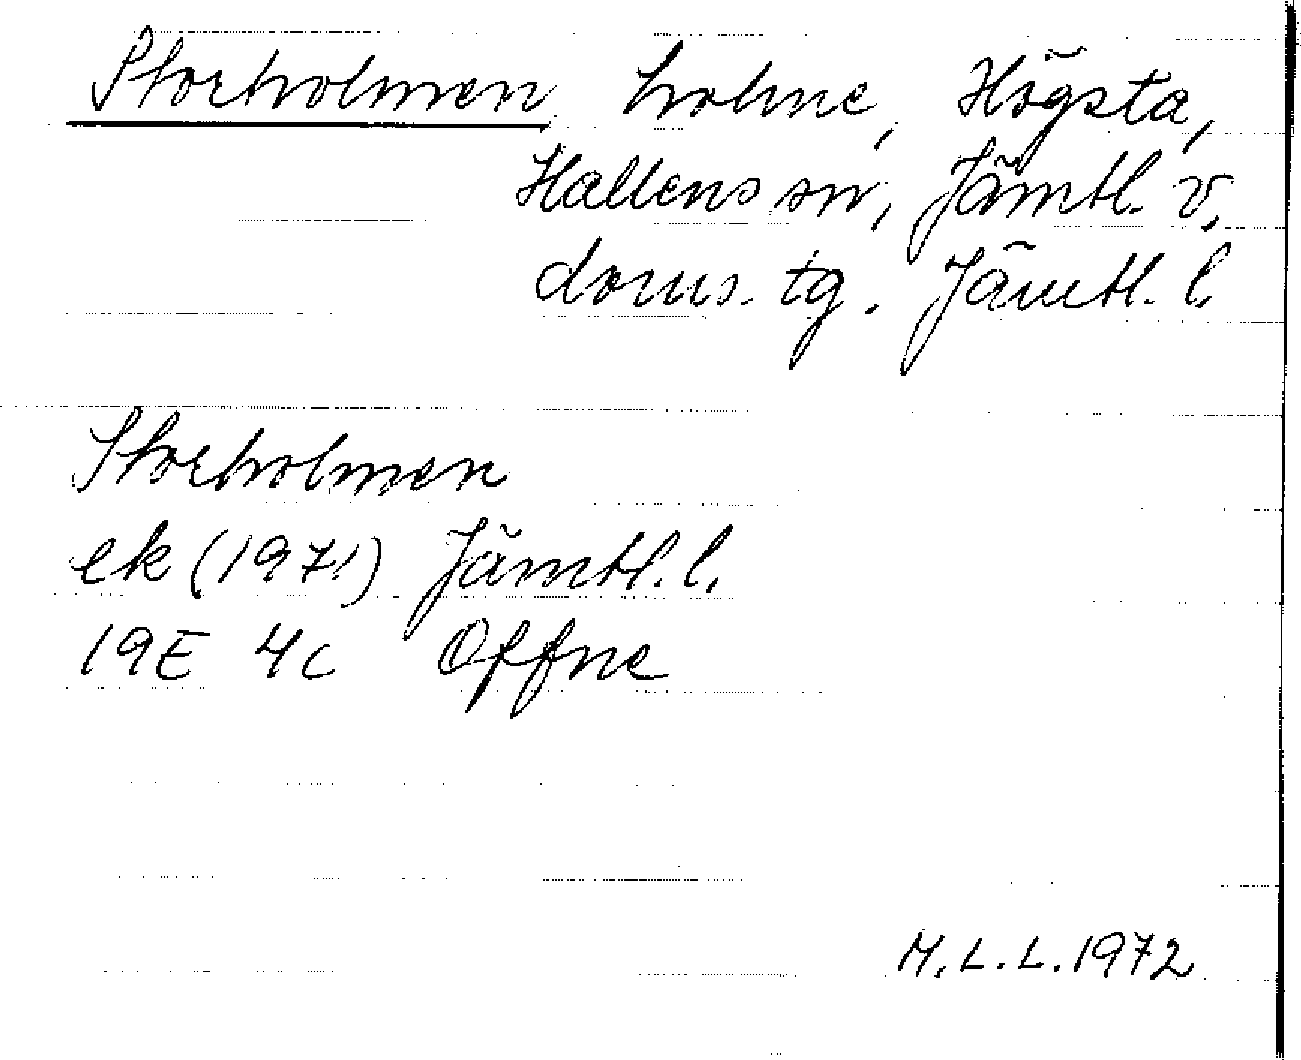 Storholmen holme, Högsta,
Hallens sn, Jämtl. v.
doms. tg. Jämtl. l.
Storholmen
ek (1971) Jämtl. l.
19E 4c Offne
M.L.L. 1972